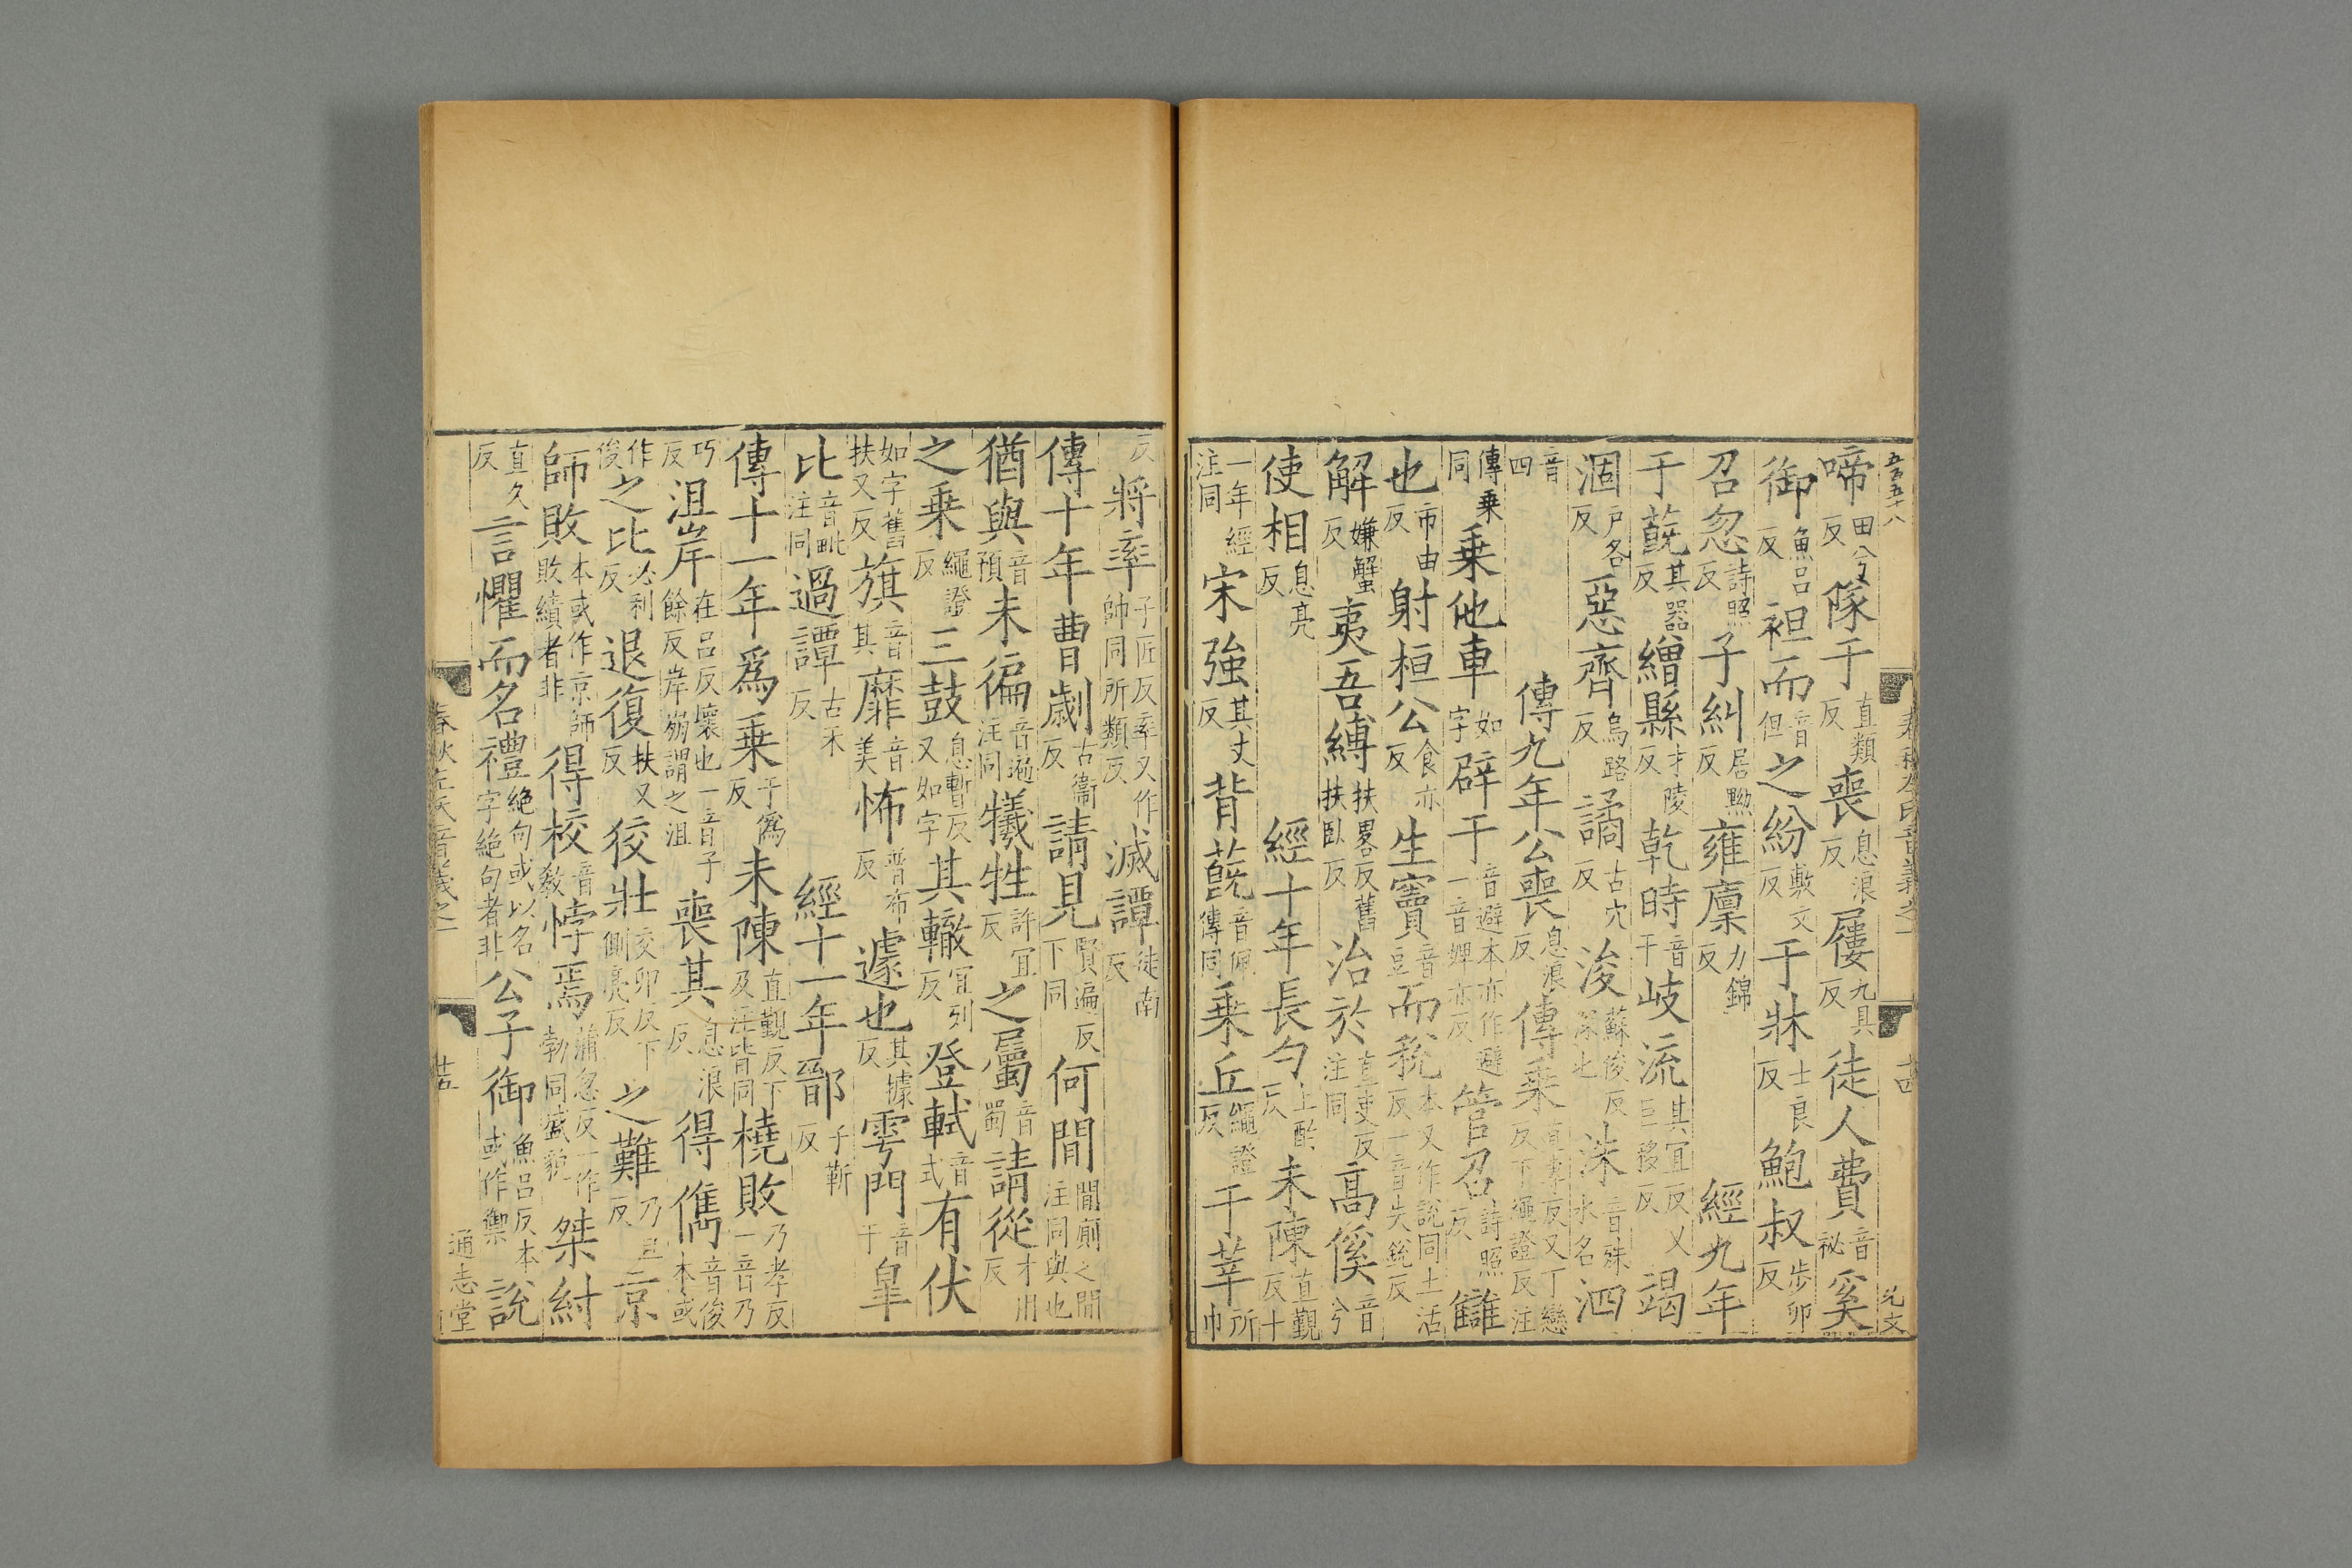 五百五十八 春秋左氏音義之一 十四
啼田兮反隊于直類反喪息浪反屨九具反徒人費音祕奚
御魚呂反袒而音但之紛敷文反于牀士良反鮑叔步卯反
召忽詩照反子糾居黝反雍廩力錦反 經九年
于蔇其器反繒縣才陵反乾時音干岐流其宜反又巨移反竭
涸戶各反惡齊烏路反譎古穴反浚蘇俊反深也洙音殊水名泗
音四 傳九年公喪息浪反傳乘直專反又丁戀反下繩證反注
傳乘同乘他車如字辟于音避本亦作避一音婢亦反管召詩照反讎
也市由反射桓公食亦反生竇音豆而稅本又作說同土活反一音失銳反
解嫌蟹反夷吾縛扶畧反舊扶臥反治於直吏反注同高傒音兮
使相息亮反 經十年長勺上酌反未陳直覲反十
一年經注同宋強其丈反背蔇音佩傳同乘丘繩證反于莘所巾
反將率子匠反率又作帥同所類反滅譚徒南反
傳十年曹劌古衞反請見賢遍反下同何間間廁之間注同與也
猶與音預未徧音遍注同犧牲許宜反之屬音蜀請從才用反
之乘繩證反三鼓息暫反又如字其轍直列反登軾音式有伏
如字舊扶又反旗音其靡音美怖普布反遽也其據反雩門音于皐
比音毗注同過譚古禾反 經十一年鄑子靳反
傳十一年爲乘于僞反未陳直覲反下及注皆同橈敗乃孝反一音乃
巧反沮岸在呂反壞也一音子餘反岸崩謂之沮喪其息浪反得儁音俊本或
作俊之比必利反退復扶又反狡壯交卯反下側亮反之難乃旦反京
師敗本或作京師敗績者非得校音教悖焉蒲忽反一作勃同盛貌桀紂
直久反言懼而名禮絶句或以名字絶句者非公子御魚呂反本或作禦說
春秋左氏音義之一 十五 通志堂